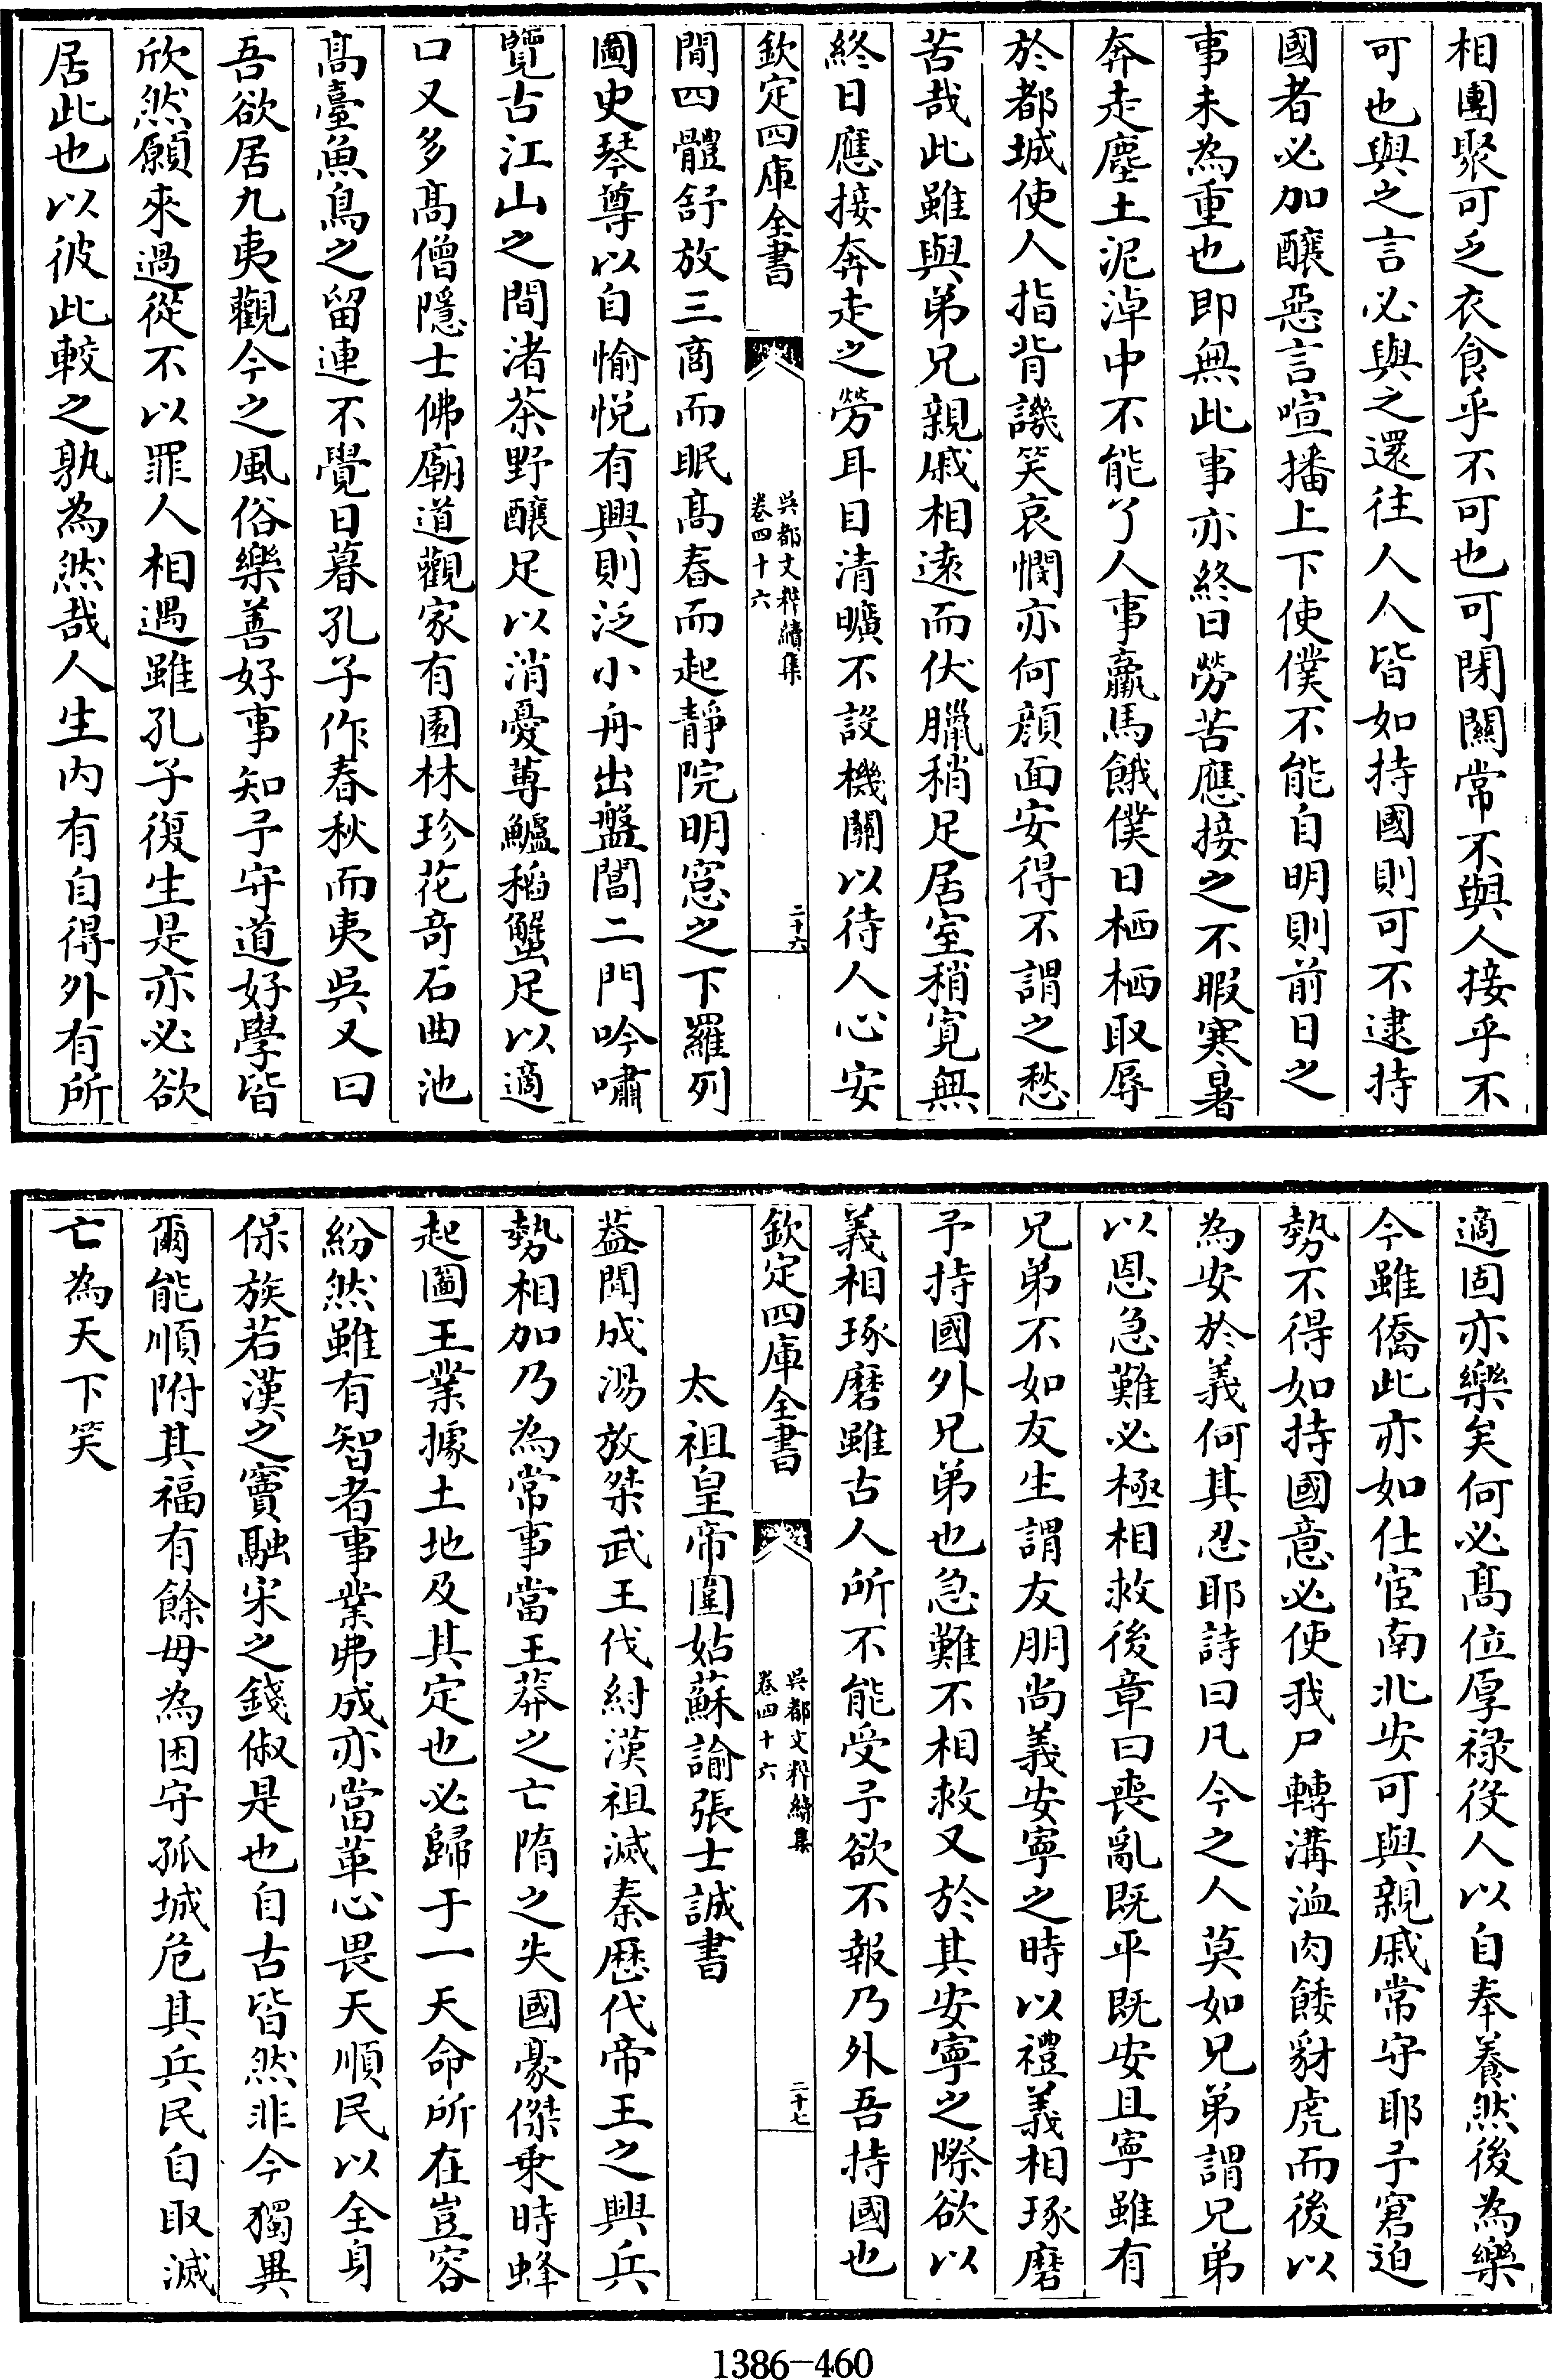 相團聚可乏衣食乎不可也可閉關常不與人接乎不
可也與之言必與之還往人人皆如持國則可不逮持
國者必加釀惡言喧播上下使僕不能自明則前日之
事未為重也即無此事亦終日勞苦應接之不暇寒暑
奔走塵土泥淖中不能了人事羸馬餓僕日栖栖取辱
於都城使人指背譏笑哀憫亦何顔面安得不謂之愁
苦哉此雖與弟兄親戚相遠而伏臘稍足居室稍寛無
終日應接奔走之勞耳目清曠不設機關以待人心安
欽定四庫全書
吳都文粹續集
卷四十六
二十六
閒四體舒放三商而眠髙舂而起靜院明窓之下羅列
圖史琴尊以自愉悅有興則泛小舟出盤閶二門吟嘯
覽古江山之間渚茶野釀足以消憂蓴鱸稻蟹足以適
口又多髙僧隱士佛廟道觀家有園林珍花竒石曲池
髙臺魚鳥之留連不覺日暮孔子作春秋而夷吳又曰
吾欲居九夷觀今之風俗樂善好事知予守道好學皆
欣然願來過從不以罪人相遇雖孔子復生是亦必欲
居此也以彼此較之孰為然哉人生内有自得外有所
適固亦樂矣何必髙位厚禄役人以自奉養然後為樂
今雖僑此亦如仕宦南北安可與親戚常守耶予窘迫
勢不得如持國意必使我尸轉溝洫肉餧豺虎而後以
為安於義何其忍耶詩曰凡今之人莫如兄弟謂兄弟
以恩急難必極相救後章曰喪亂既平既安且寧雖有
兄弟不如友生謂友朋尚義安寧之時以禮義相琢磨
予持國外兄弟也急難不相救又於其安寧之際欲以
義相琢磨雖古人所不能受予欲不報乃外吾持國也
欽定四庫全書
吳都文粹續集
卷四十六
二十七
太祖皇帝圍姑蘇諭張士誠書
葢聞成湯放桀武王伐紂漢祖滅秦歴代帝王之興兵
勢相加乃為常事當王莽之亡隋之失國豪傑乗時蜂
起圖王業據土地及其定也必歸于一天命所在豈容
紛然雖有智者事業弗成亦當革心畏天順民以全身
保族若漢之竇融宋之錢俶是也自古皆然非今獨異
爾能順附其福有餘毋為困守孤城危其兵民自取滅
亡為天下笑
1386—460